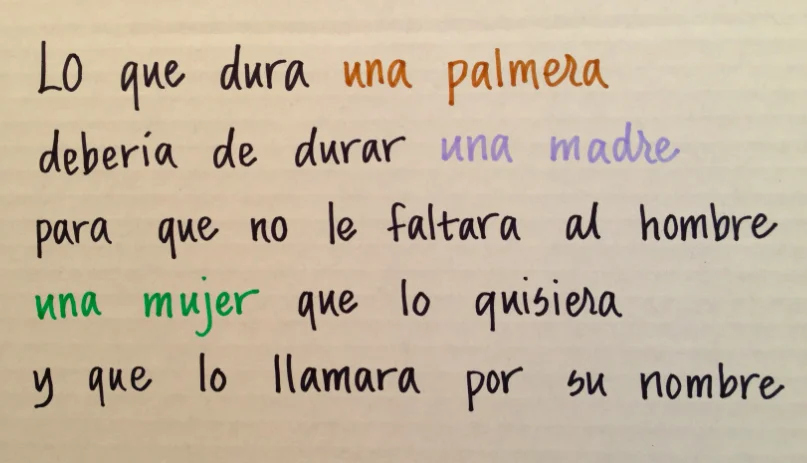 Lo que dura una palmera
debería de durar una madre
para que no le faltara al hombre
una mujer que lo quisiera
y que lo llamara por su nombre